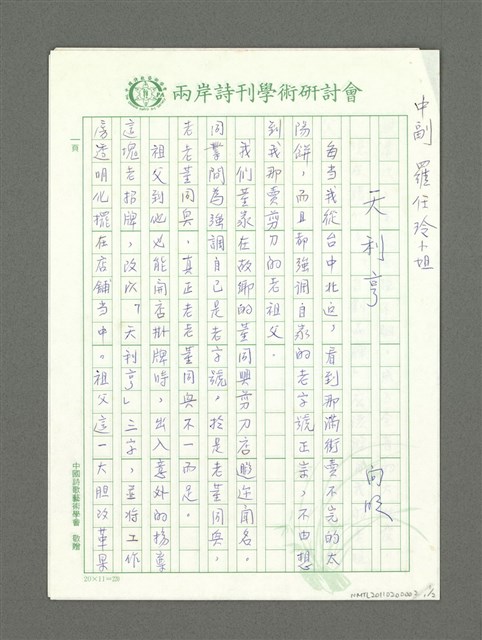 兩岸詩刊學術研討會
中副 羅任玲小姐
天利亨
向明
每當我從台中北返，看到那滿街賣不完的太
陽餅，而且都強調自家的老字號正宗，不由想
到我那賣剪刀的老祖父。
我們董家在故鄉的董同興剪刀店遐迩聞名。
同業間為強調自己是老字號，於是老董同兴，
老老董同兴，真正老老董同兴不一而足。
祖父到他必能開店掛牌時，出入意外的揚棄
這塊老招牌，改以「天利亨」三字，並將工作
房透明化擺在店鋪当中。祖父這一大胆改革果
一頁
中國詩歌藝術學會 敬贈
20×11=20
NMTL20110200002 1/2